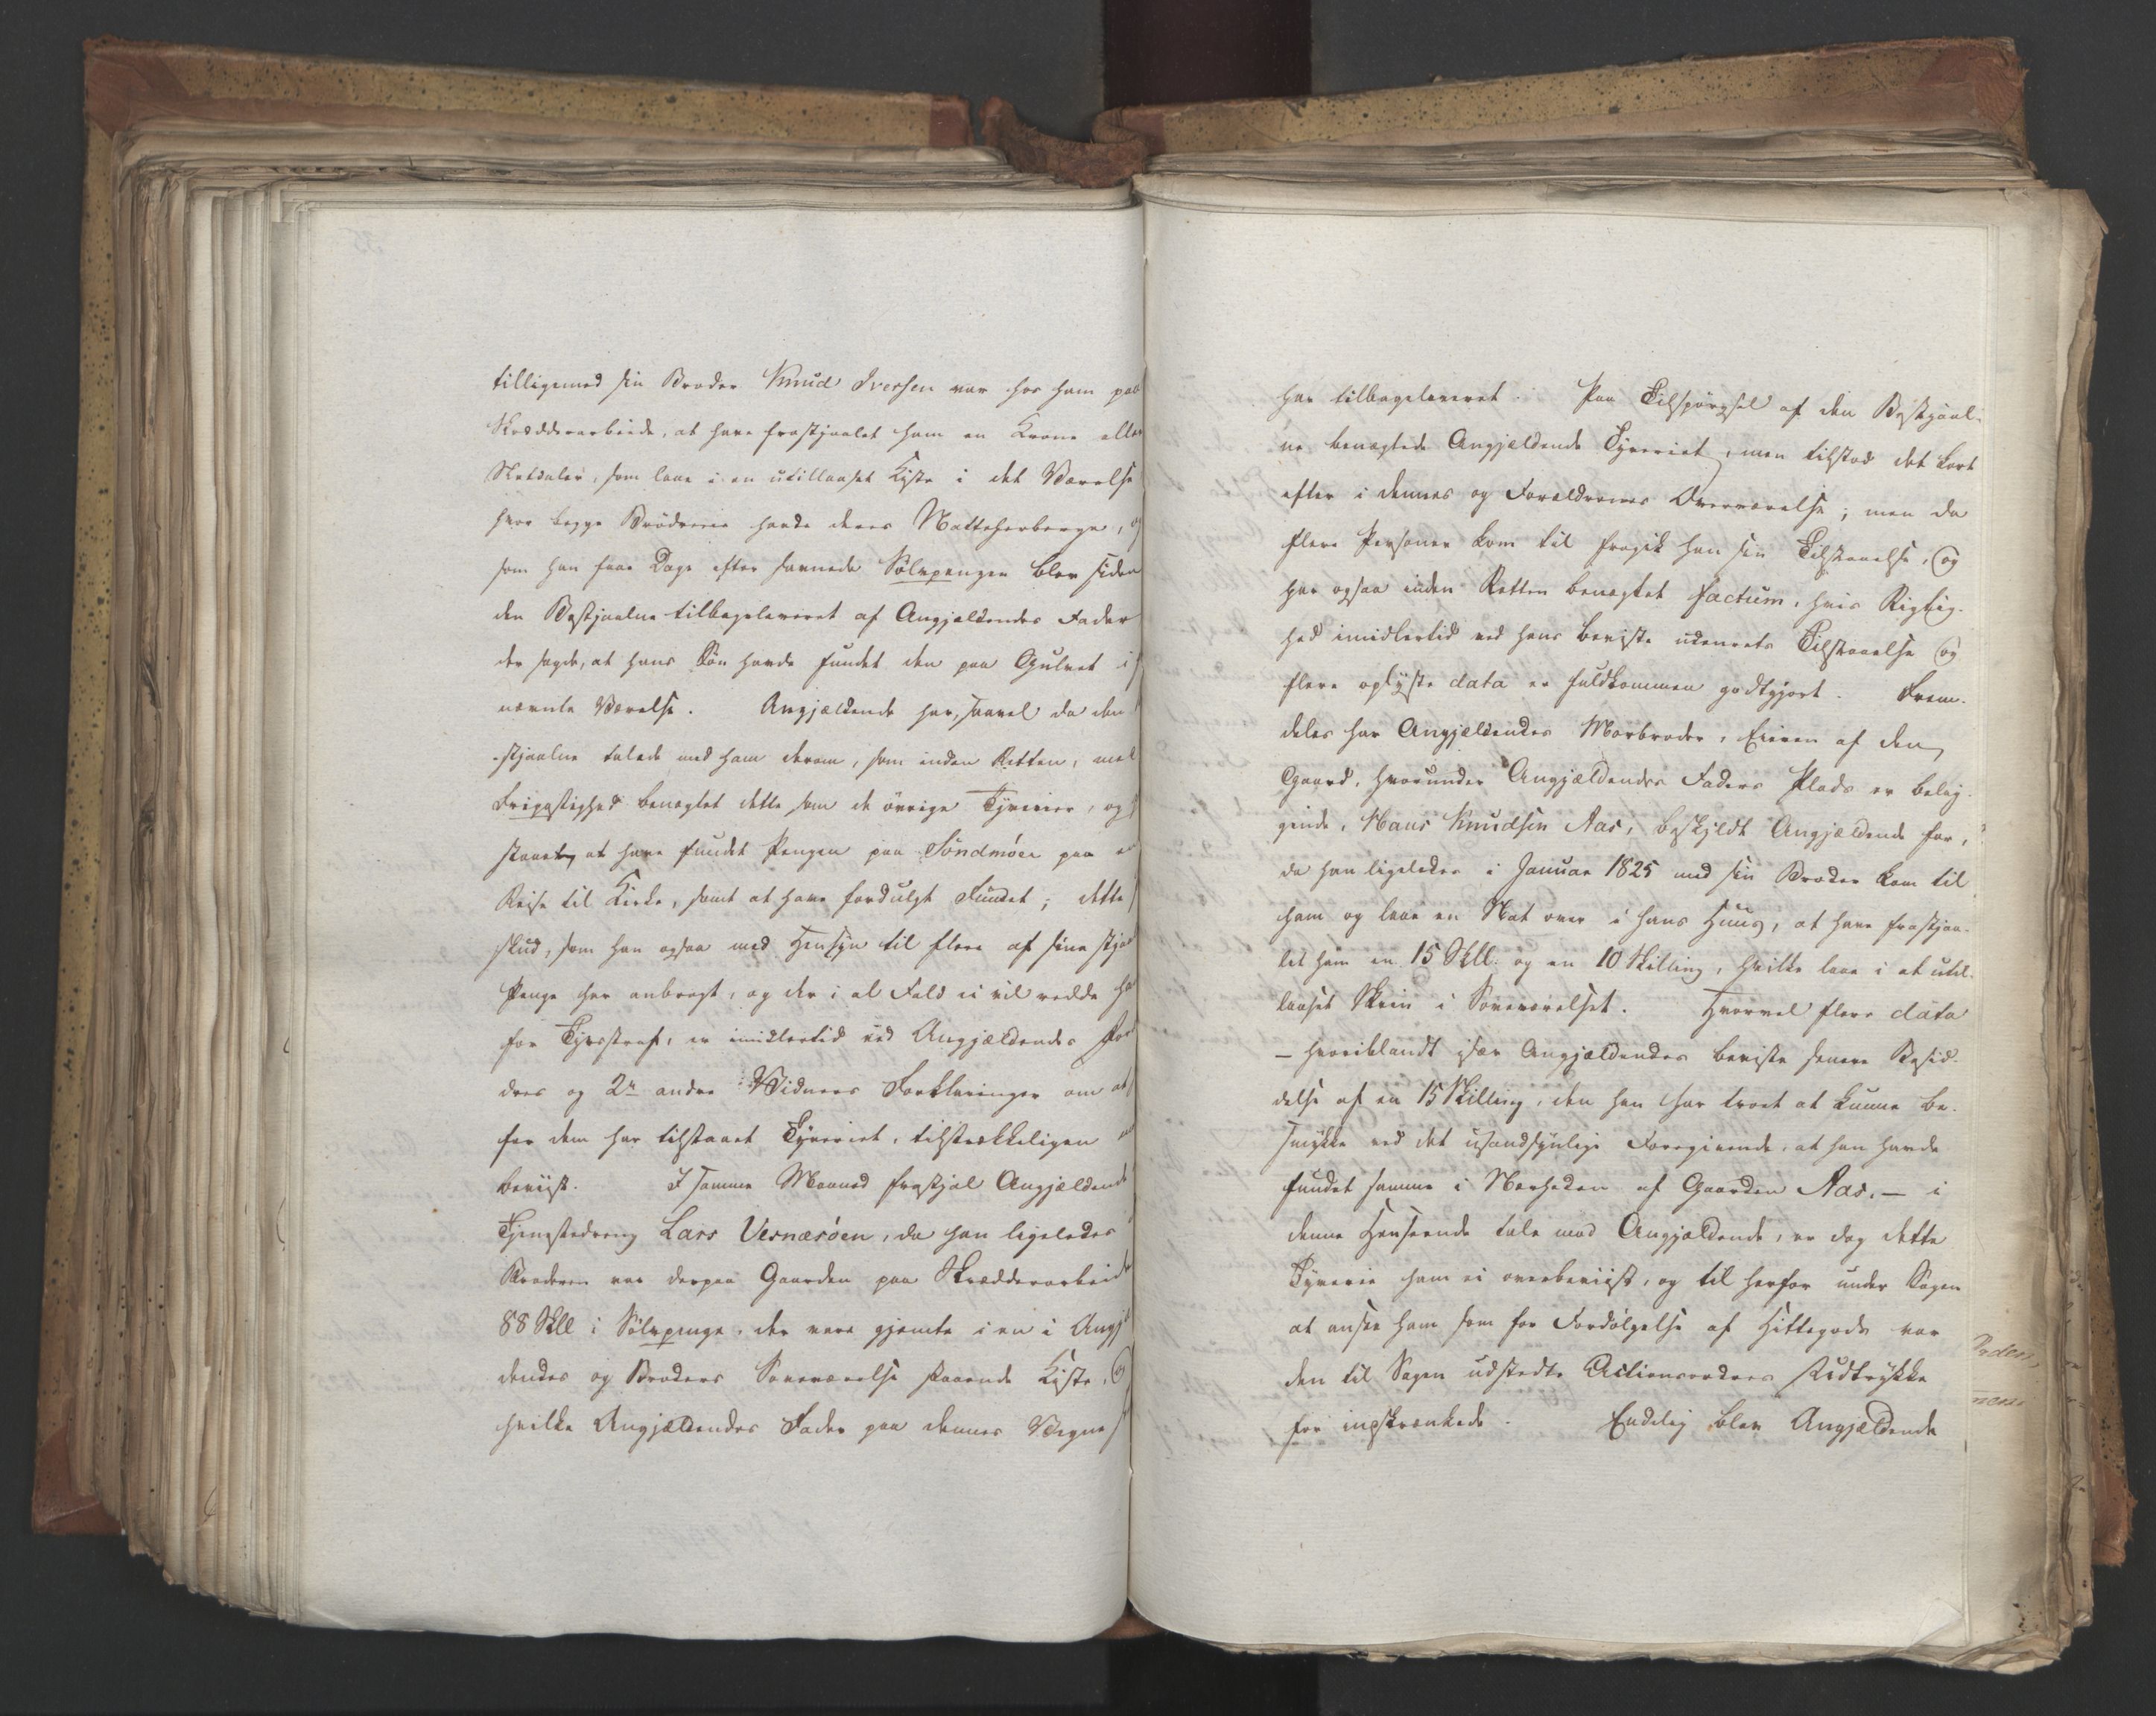 tilligemed sin Broder Knud Iversen var hos ham paa
Skrædderarbeide, at have frastjaalet ham en Krone eller
Sletdaler, som laae i en utillaaset Kiste i det Værelse
hvor begge Brödrene havde deres Natteherberge, og
som han faae Dage efter savnede Sölvpengen blev siden
den Bestjaalne tilbageleveret af Angjældendes Fader
der sagde, at hans Sön havde fundet den paa Gulvet i
nævnte Værelse. Angjældende har, saavel da den
stjaalne talede med ham derom, som inden Retten, med
Dristighed benægtet dette som de övrige Tyverier, og
staaet at have fundet Pengen paa Söndmöer paa en
Reise til Kirke, samt at have fordulgt Fundet; dette
skud, som han ogsaa med Hensyn til flere af sine stjaa
Penge har anbragt, og der i al Fald ei vil redde ham
for Tyvsstraf, er imidlertid ved Angjældendes For
dres og 2de andre Vidners Forklaringer om at
for dem har tilstaaet Tyveriet, tilstrækkeligen
beviist. I samme Maaned frastjal Angjældende
Tjenestedreng Lars Vernæsöen, da han ligeledes
Broderen var derpaa Gaarden paa Skrædderarbeide
88 Skll i Sölvpenge, der vare gjemte i en i Angjæl
dendes og Broders Soveværelse staaende Kiste, og
hvilke Angjældendes Fader paa dennes Vegne
har tilbageleveret. Paa Tilspörgsel af den Bestjaal-
ne benægtede Angjældende Tyveriet, men tilstod det kort
efter i dennes og Forældrenes Overværelse; men da
flere Personer kom til fragik han sin Tilstaaelse, og
har ogsaa inden Retten benægtet factum, hvis Rigtig-
hed imidlertid ved hans beviste udenrets Tilstaaelse og
flere oplyste data er fuldkommen godtgjort. Frem-
deles har Angjældendes Morbroder, Eieren af den
Gaard, hvorunder Angjældendes Faders Plads er belig-
gende, Hans Knudsen Aas, beskyldt Angjældende for,
da han ligeledes i Januar 1825 med sin Broder kom til
ham og laae en Nat over i hans Huus, at have frastjaa-
let ham en 15 Skll. og en 10 Skilling, hvilke laae i et util-
laaset Skrin i Soveværelset. Hvorvel flere data
– hvoriblandt især Angjældendes beviste senere Besid-
delse af en 15 Skilling, den han har troet at kunne be-
smykke ved det usandsynlige Foregivende, at han havde
fundet samme i Nærheden af Gaarden Aas, – i
denne Henseende tale mod Angjældende, er dog dette
Tyverie ham ei overbeviist, og til herfor under Sagen
at ansee ham som for Fordölgelse af Hittegods var
den til Sagen udstedte Actionsordres Udtrykke
for indskrænkede. Endelig blev Angjældende